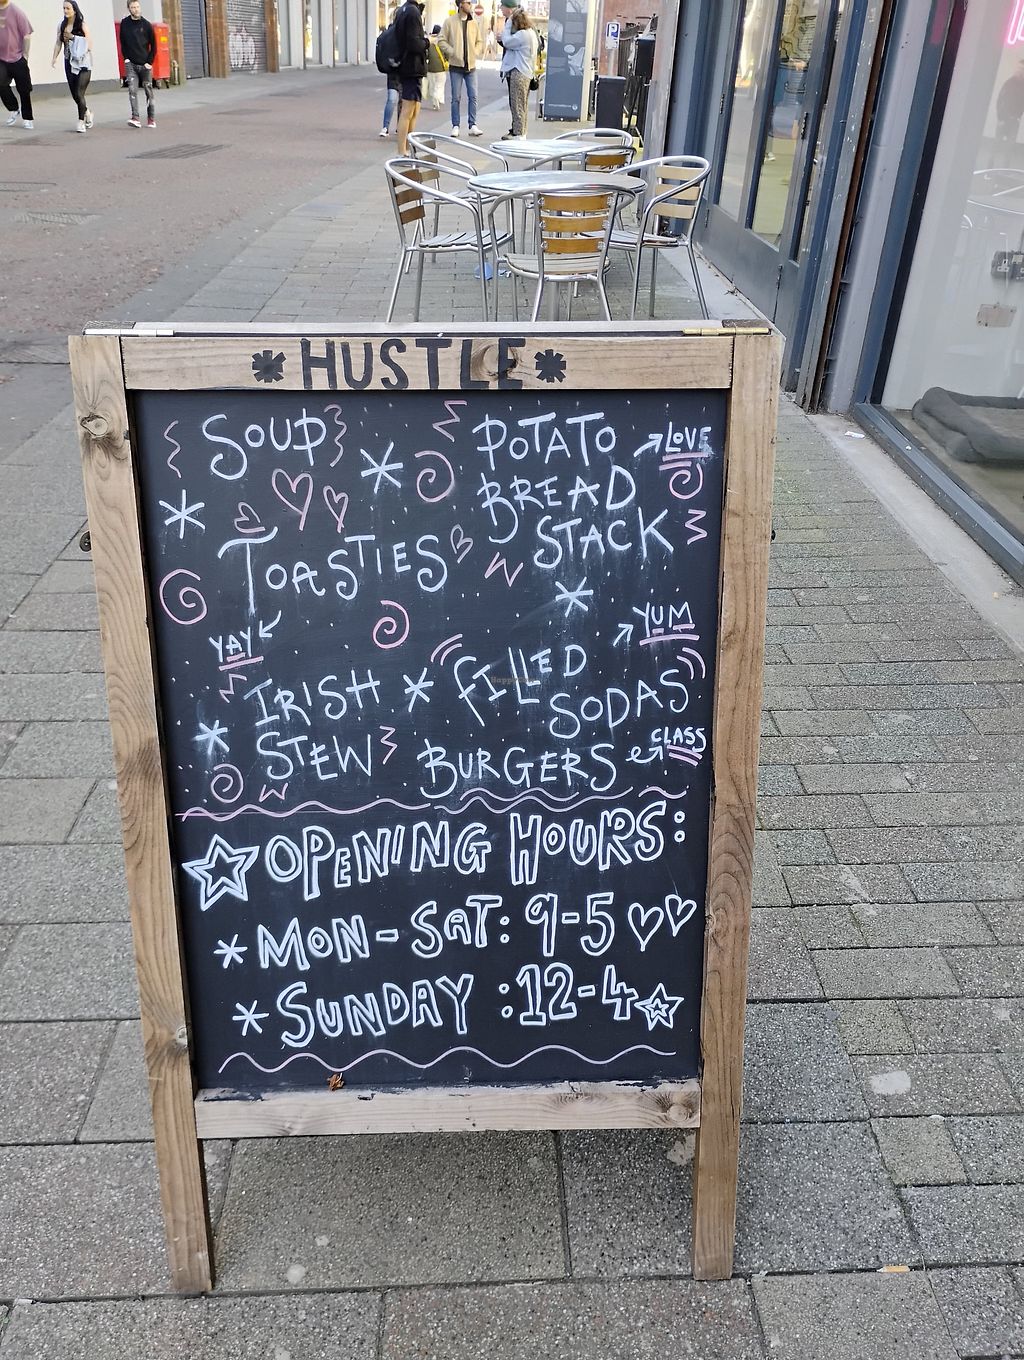 *HUSTLE*
SOUP
POTATO
LOVE
BREAD
STACK
TOASTIES
YAY
YUM
IRISH
STEW
FILLED
SODAS
BURGERS
CLASS
OPENING HOURS:
* MON - SAT: 9-5
* SUNDAY : 12-4